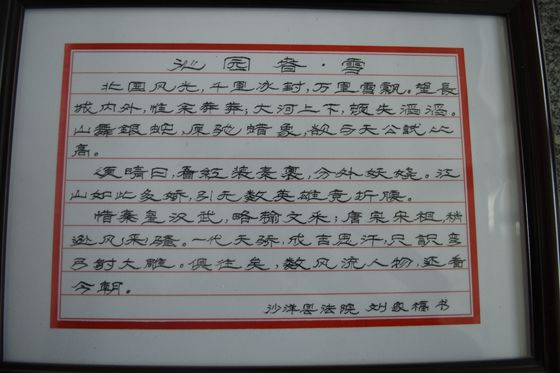 沁园春·雪
北国风光,千里冰封,万里雪飘。望長
城内外,惟余莽莽;大河上下,顿失滔滔。
山舞銀蛇,原驰蜡象,欲与天公試比
高。
须晴日,看紅装素裹,分外妖娆。江
山如此多娇,引无数英雄竞折腰。
惜秦皇汉武,略输文采;唐宗宋祖,稍
逊风采骚。一代天骄,成吉思汗,只識弯
弓射大雕。俱往矣,数风流人物,还看
今朝。
沙洋县法院 刘家 书